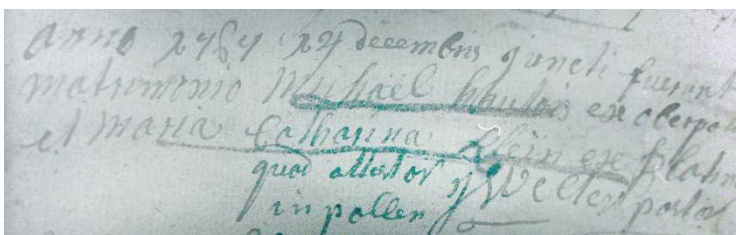 anno 1767 27 decembris juncti fuerunt
matrimonio Michaël ex oberpal
et Maria Catharina Klein ex
quod attestor Welter pastor
in pallen